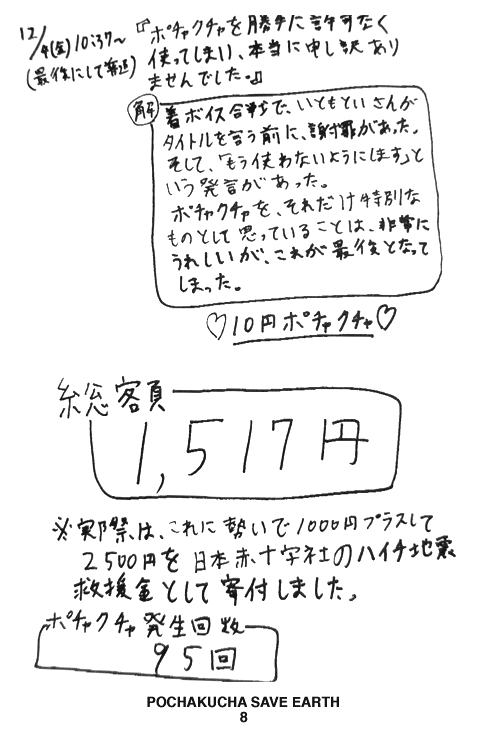 12/4(金)10:37~
(最後にして新)
『ポチャクチャを勝手に許可なく
使ってしまい、本当に申し訳あり
ませんでした。』
解
着ボイス合戦で、いともといさんが
タイトルを言う前に、謝罪があった。
そして、「もう使わないようにします」と
いう発言があった。
ポチャクチャを、それだけ特別な
ものとして思っていることは、非常に
うれしいが、これが最後となって
しまった。
♡10円ポチャクチャ♡
総額
1,517円
※実際は、これに勢いで1000円プラスして
2500円を日本赤十字社のハイチ地震
救援金として寄付しました。
ポチャクチャ発生回数
95回
POCHAKUCHA SAVE EARTH
8